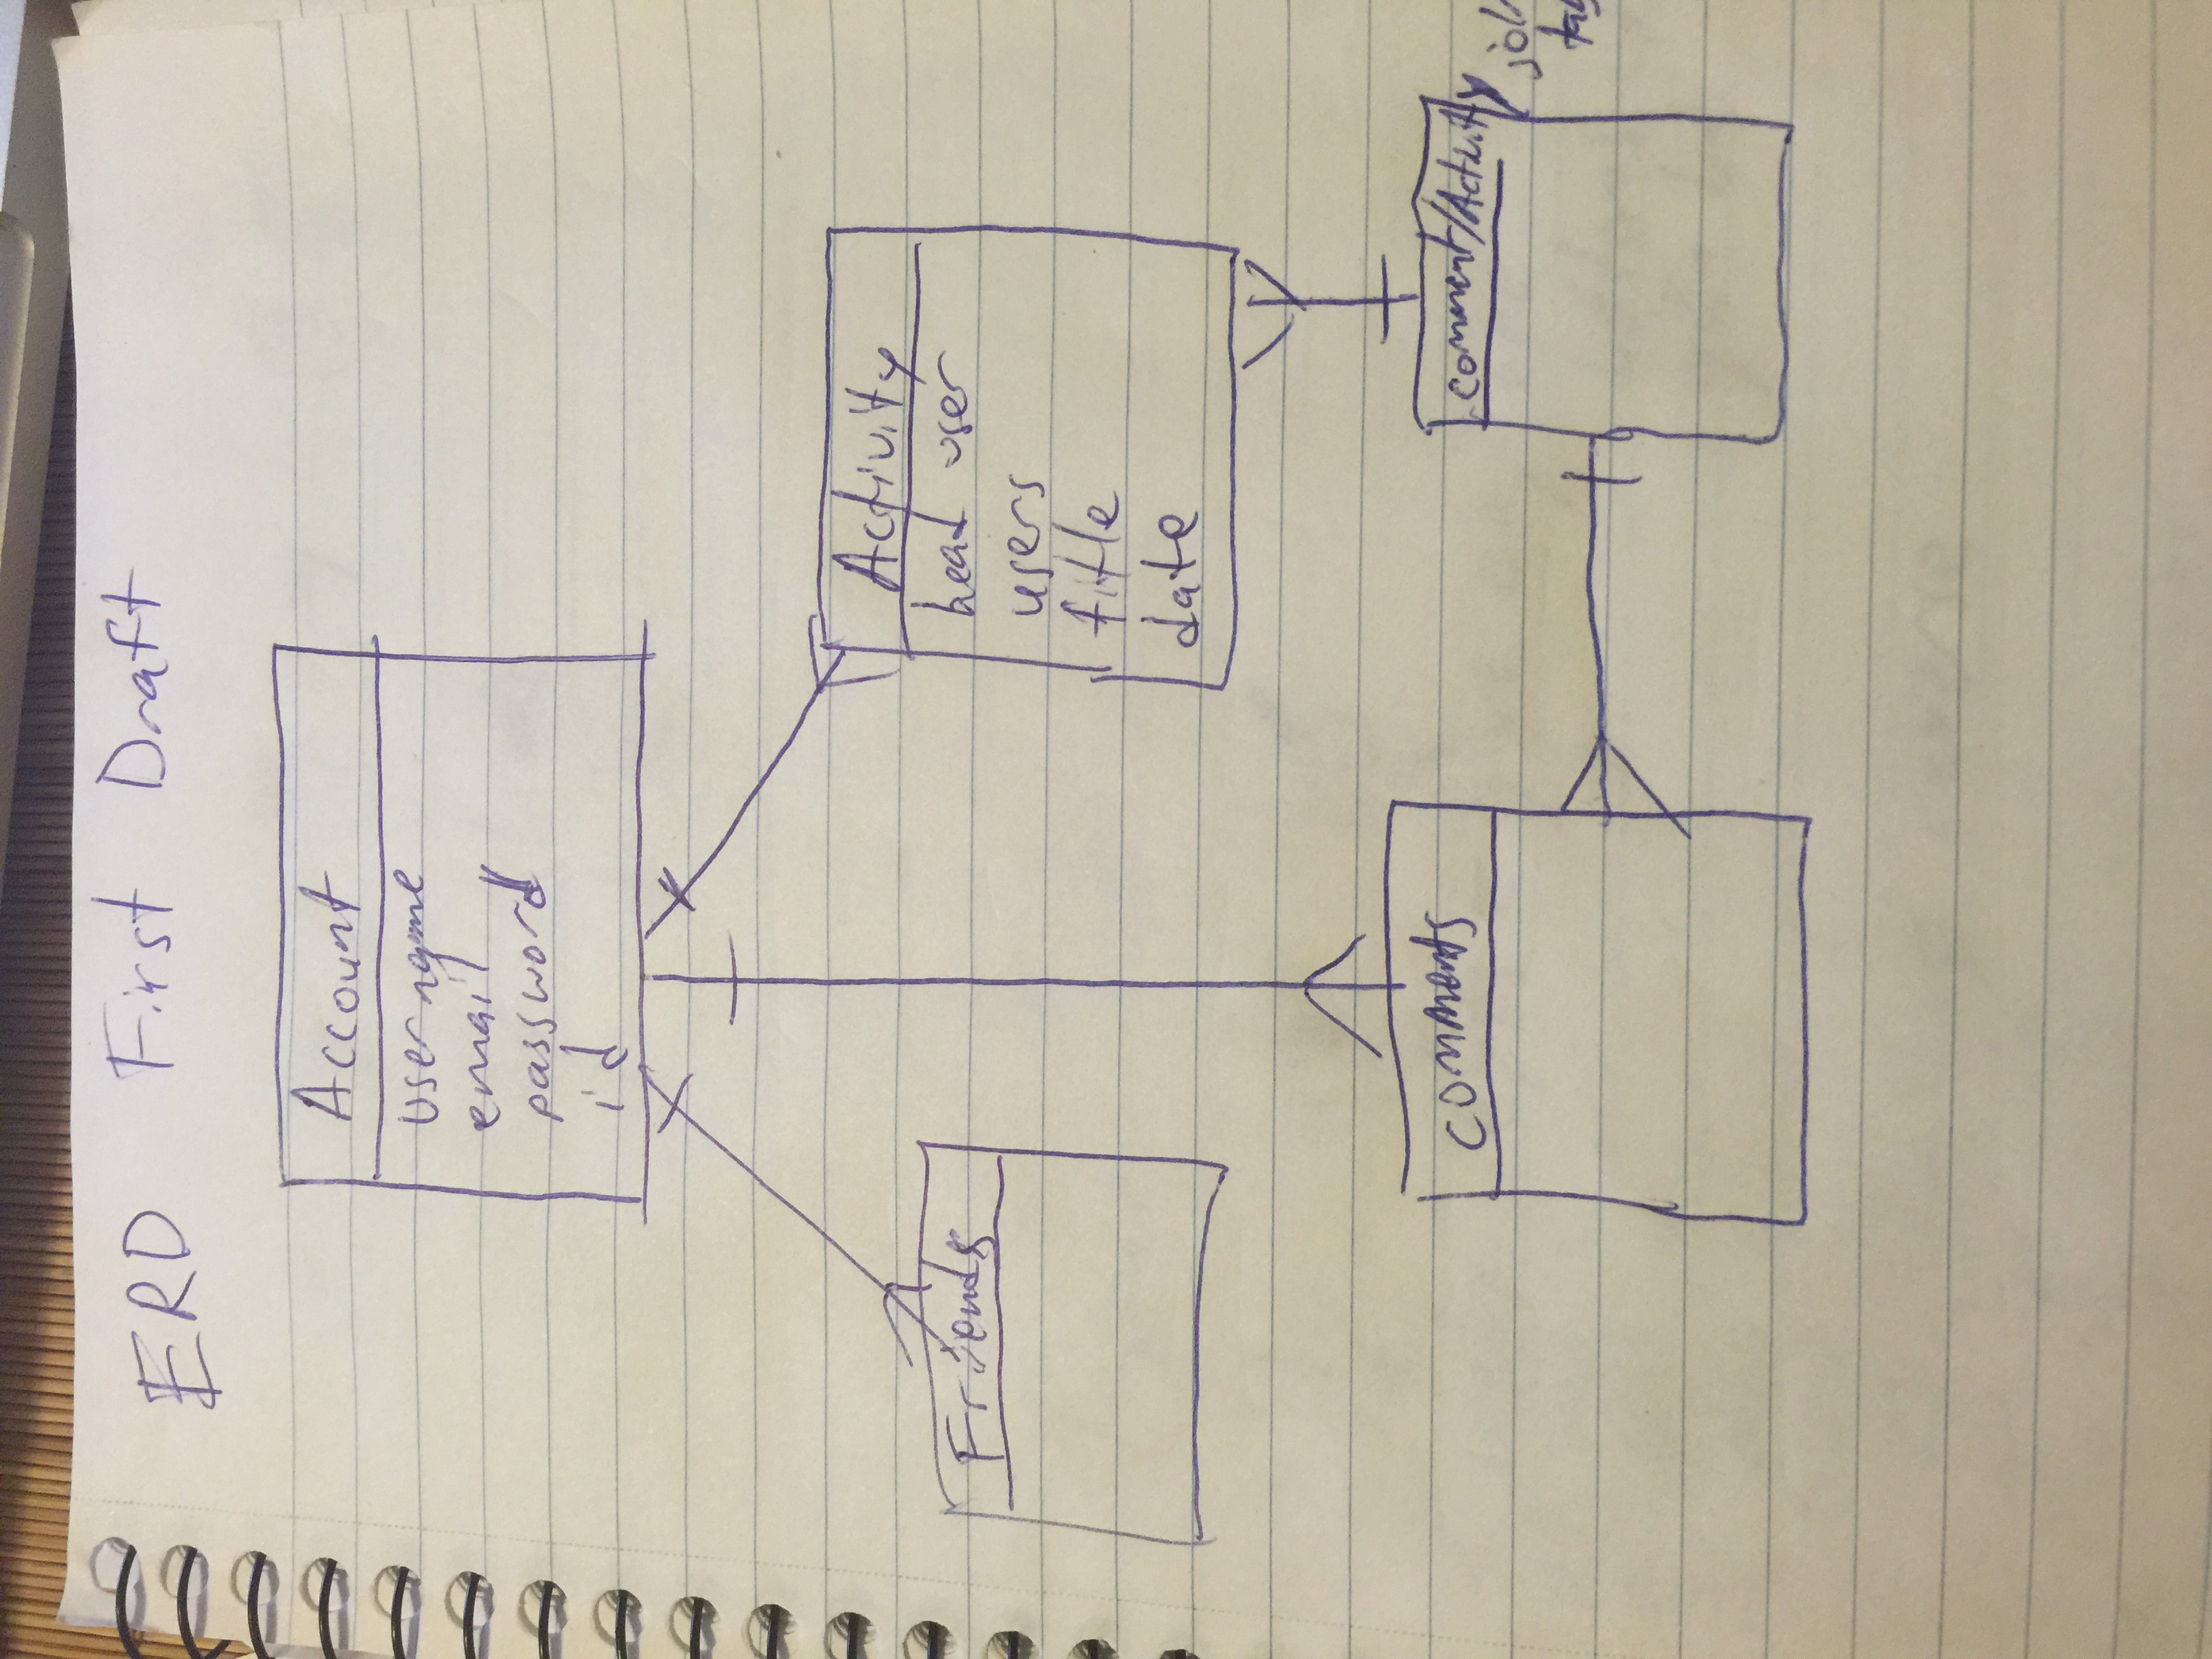 ERD First Draft
Account
username
email
password
id
Friends
Activity
head user
users
title
date
comments
comment/Activity